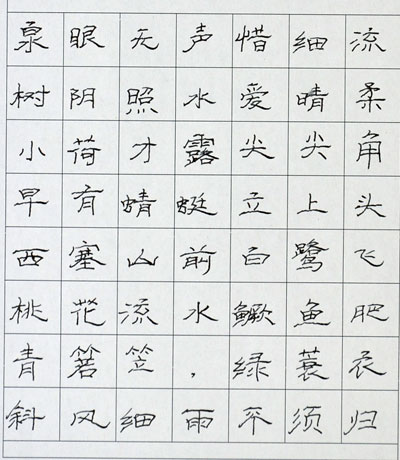 泉眼无声惜细流
树阴照水爱晴柔
小荷才露尖尖角
早有蜻蜓立上头
西塞山前白鹭飞
桃花流水鳜鱼肥
青箬笠，绿蓑衣
斜风细雨不须归